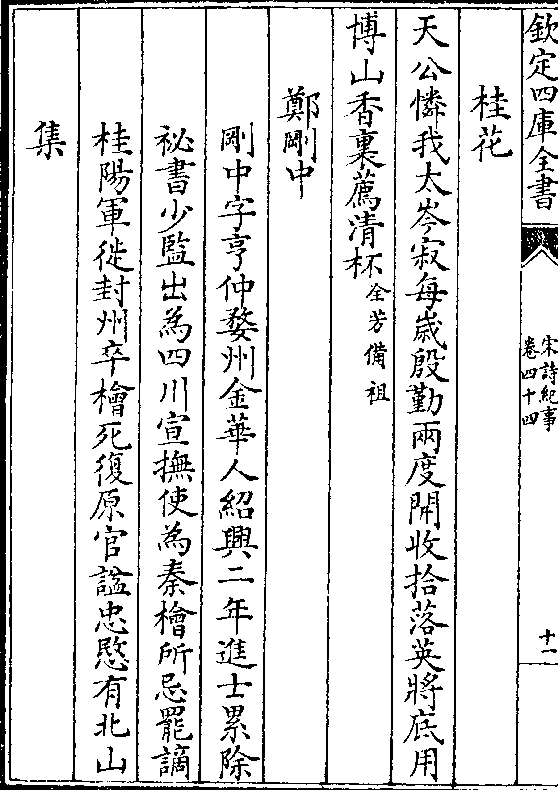 欽定四庫全書
宋詩紀事
卷四十四
十一
桂花
天公憐我太岑寂每歲殷勤兩度開收拾落英將底用
博山香裏薦清杯全芳備祖
鄭剛中
剛中字亨仲婺州金華人紹興二年進士累除
祕書少監出為四川宣撫使為秦檜所忌罷謫
桂陽軍徙封州卒檜死復原官諡忠愍有北山
集